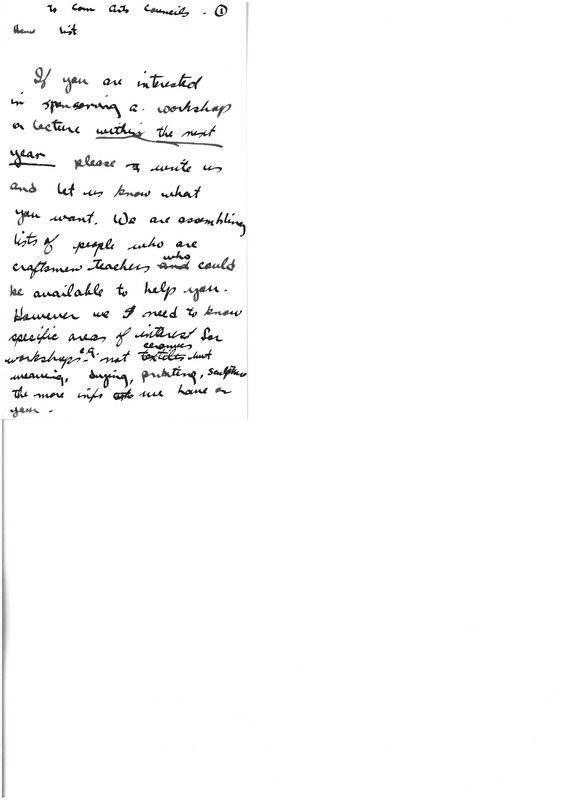 to Com Arts Councils. ①
list
If you are interested
in sponsoring a workshop
or lecture within the next
year please write us
and let us know what
you want. We are assembling
lists of people who are
craftsmen teachers and who could
be available to help you.
However we need to know
specific areas of interest for
workshops e.g. not textiles ceramics but
weaving, dying, printing, sculpture
the more info we have on
your.